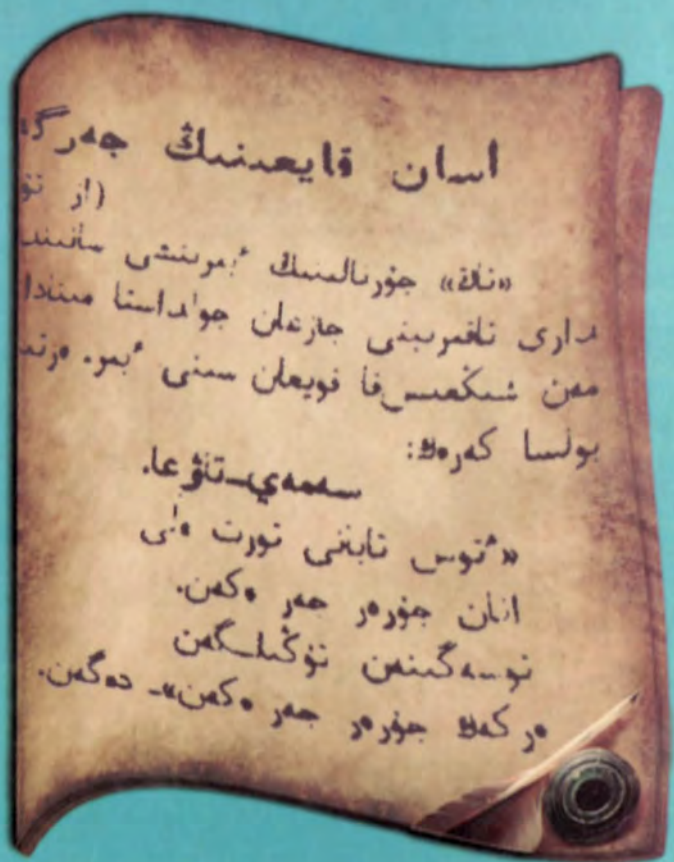 اسان قايعىنىڭ جەرگە
(از تۇ
«تاڭ» جۋرنالىنىڭ ٴبىرىنشى سانىندا
جازعان مىنادا
مەن شىڭعىسقا قويعان سىنى ٴبىر.
بولسا كەرەك:
سەمەي-تاۋعا.
«ٴتوس تابانى تورت ەلى
اتان جۇرەر جەر ەكەن.
توسەگىنەن تۇڭىلگەن
ەركەك جۇرەر جەر ەكەن»- دەگەن.